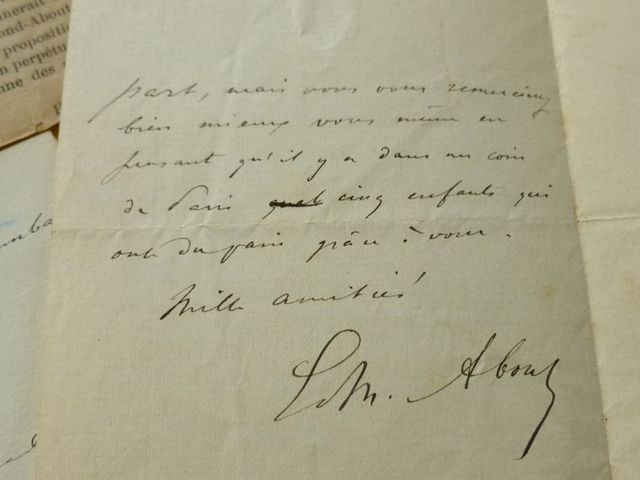 nerait
ond-About
propositi
n perpétu
nne des
part, mais vous vous remercierez
bien mieux vous même en
pensant qu'il y a dans un coin
de Paris quat cinq enfants qui
ont du pain grâce à vous.
Mille amitiés
Edm. About